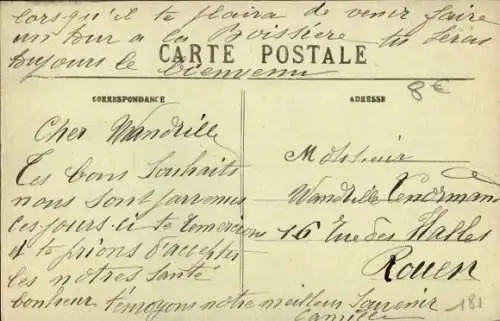 Lorsqu'il te plaira de venir faire
un tour a la Boissière tu seras
toujours le bienvenu
CARTE POSTALE
8€
CORRESPONDANCE
ADRESSE
Cher Wandrille
Tes bons souhaits
nous sont parvenus
ces jours ci te remercions
& te prions d'accepter
les notres santé
bonheur témoyons notre meilleur souvenir
Camille
Monsieur
Wandrille Lenormand
16 Rue des Halles
Rouen
181